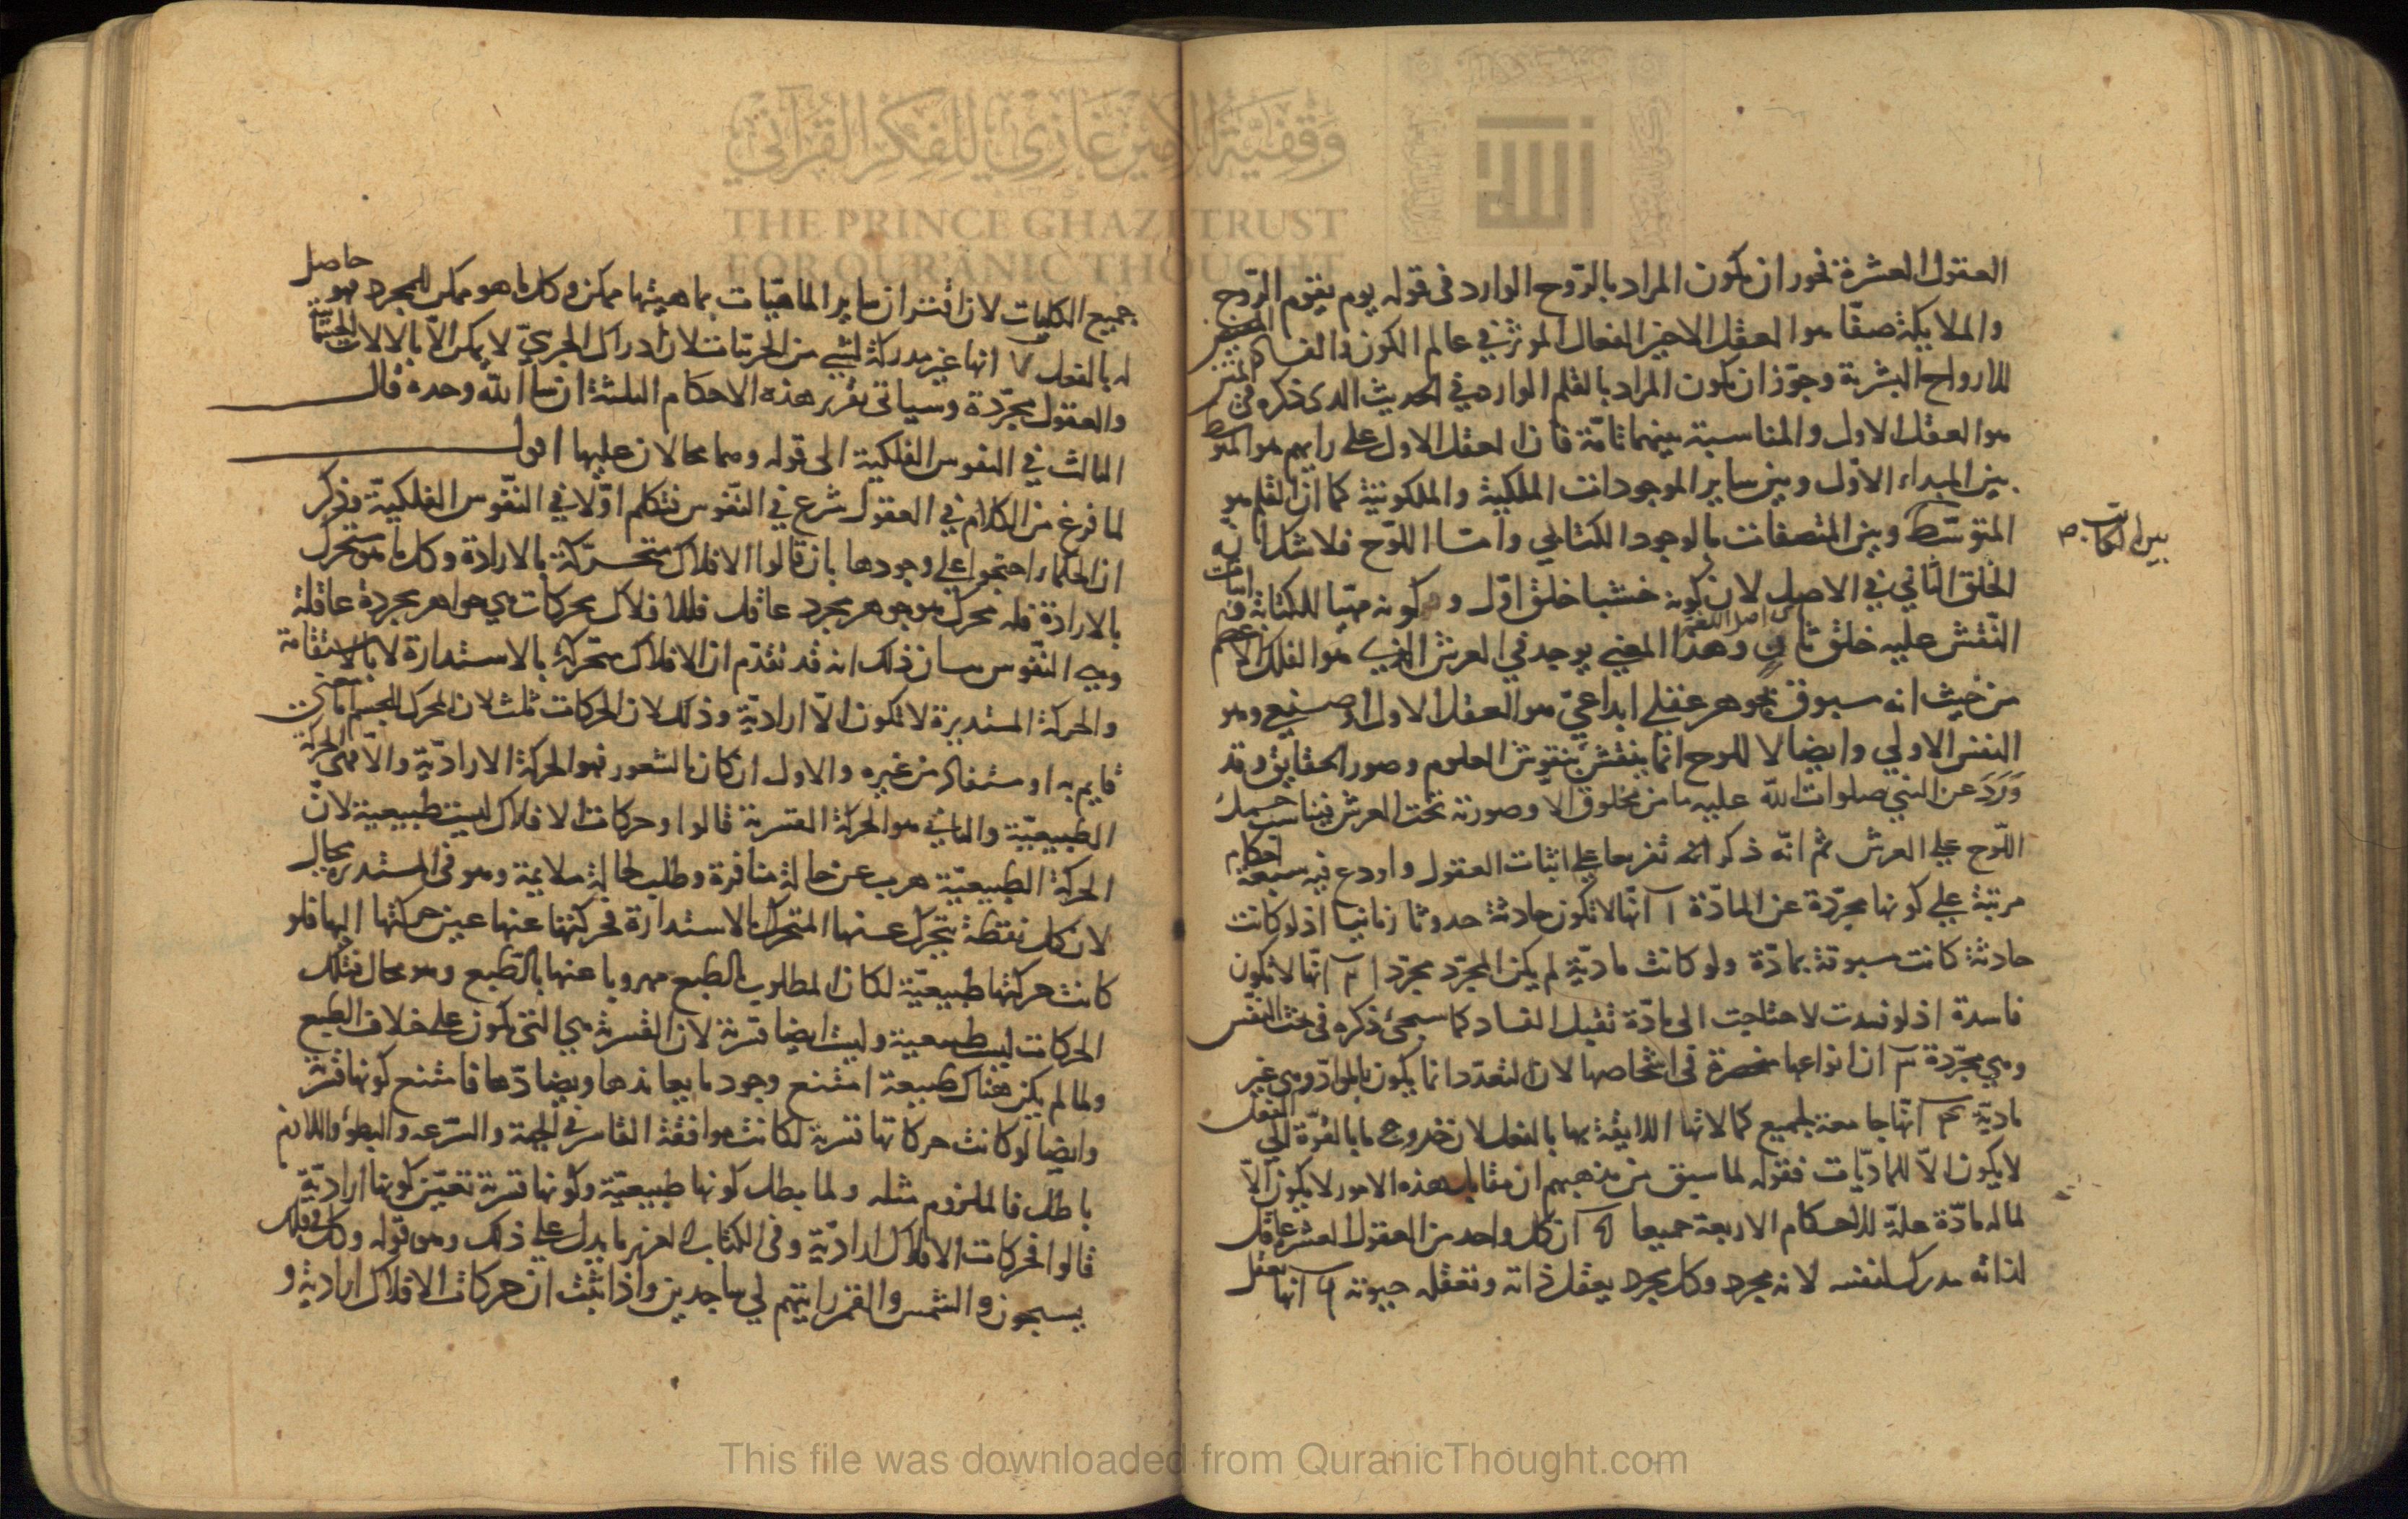 العقول العشرة نحور ان يكون المراد بالروح الوارد فى قوله يوم يقوم الروح
والملايكة صفّا هو العقل الاخير الفعال الموثر في عالم الكون والفساد
للارواح البشرية وجوّز ان يكون المراد بالقلم الوارد في الحديث الدى ذكره في
هو العقل الاول والمناسبة بينهما تامّة فان العقل الاول على رايهم هو المتوسط
بين المبداء الاوّل وبين ساير الموجودات الملكية والملكوتية كما ان القلم هو
المتوسّط وبين المتصفات بالوجود الكتابي وامّا اللوح فلا شك انه
بين الكاتب صح
الخلق الثاني في الاصل لان كونه خشبا خلق اوّل و كونه مهيّا للكتابة
النّقش عليه خلق ثانٍ وهذا المعني يوجد في العرش الذي هو الفلك الاعظم
من حيث انه مسبوق بجوهر عقلي ابداعيّ هو العقل الاول او وهو
النفس الاولي وايضا لا اللوح انما ينقش بنقوش العلوم وصور الحقايق وقد
وَرَدَ عن النبي صلوات الله عليه ما من مخلوق الا وصورته تحت العرش فيناسب حمل
اللّوح علي العرش ثم انّه ذكر تفريعا علي اثبات العقول واودع فيه سبعة احكام
مرتبة علي كونها مجرّدة عن المادّة ا انّها لا تكون حادثة حدوثا زمانيا اذ لو كانت
حادثة كانت مسبوقة بمادّة ولو كانت ماديّة لم يكن المجرّد مجرّدا ٢ انّها لا تكون
فاسدة اذ لو فسدت لاحتاجت الى مادّة تقبل الفساد كما سيجئ ذكره في بحث النفس
وهي مجرّدة ٣ ان انواعها منحصرة في اشخاصها لان التعدّد انما يكون بالموادّ وهي غير
ماديّة ٤ انّها جامعة لجميع كمالاتها اللايقة بها بالفعل لان خروج ما بالقوّة الي الفعل
لا يكون الاّ للماديّات فقوله لما سبق من مذهبهم ان مقابل هذه الامور لا يكون الاّ
لما له مادّة علّة للاحكام الاربعة جميعا ٥ ان كل واحد من العقول العشرة عاقل
لذاته مدرك لنفسه لانه مجرد وكل مجرد يعقل ذاته وتعقله حيوته ٦ انها تعقل
جميع الكليات لان اقتران ساير الماهيّات بماهيتها ممكن وكل ما هو ممكن للمجرد فهو حاصل
له بالفعل ٧ انها غير مدركة لشي من الجزئيات لان ادراك الجزيّ لا يمكن الاّ بالالات الجسمانية
والعقول مجرّدة وسياتى تقرير هذه الاحكام الثلثة ان شا الله وحده قال
الثالث في النفوس الفلكية الى قوله وهما محالان عليها اقول
لما فرغ من الكلام في العقول شرع في النّفوس فتكلم اوّلا في النّفوس الفلكيّة وذكر
ان الحكماء احتجوا علي وجودها بان قالوا الافلاك متحرّكة بالارادة وكل ما هو متحرك
بالارادة فله محرك هو جوهر مجرد عاقل فللافلاك محركات هي جواهر مجردة عاقلة
وهي النّفوس بيان ذلك انه قد تقدّم ان الافلاك متحركة بالاستدارة لا بالاستقامة
والحركة المستديرة لا تكون الاّ اراديّة وذلك لان الحركات ثلث لان المحرك للجسم اما معنى
قايم به او مستفاد من غيره والاول ان كان بالشعور فهو الحركة الاراديّة والاّ فهي الحركة
الطبيعيّة والثاني هو الحركة القسرية قالوا وحركات الافلاك ليست طبيعية لانّ
الحركة الطبيعيّة هرب عن حالة منافرة وطلب لحالة ملايمة وهو في المستديرة محال
لان كل نقطة يتحرك عنها المتحرك بالاستدارة فحركتها عنها عين حركتها اليها فلو
كانت حركتها طبيعيّة لكان المطلوب بالطبع مهروبا عنها بالطّبع وهو محال فتلك
الحركات ليست طبيعية وليست ايضا قسرية لان القسرية هي التي تكون على خلاف الطبع
ولما لم يكن هناك طبيعة امتنع وجود ما يعاندها ويضادّها فامتنع كونها قسرية
وايضا لو كانت حركاتها قسرية لكانت موافقة القاسر في الجهة والسّرعه والبطو واللازم
باطل فالملزوم مثله ولما بطل كونها طبيعيّة وكونها قسرية تعيّن كونها اراديّة
قالوا فحركات الافلاك اراديّة وفى الكتاب العزيز ما يدل علي ذلك وهو قوله وكل في فلك
يسبحون والشمس والقمر رايتهم لي ساجدين واذا ثبت ان حركات الافلاك ارادية و
THE PRINCE GHAZI TRUST
FOR QURANIC THOUGHT
وقفية الأمير غازي للفكر القرآني
الله
This file was downloaded from QuranicThought.com